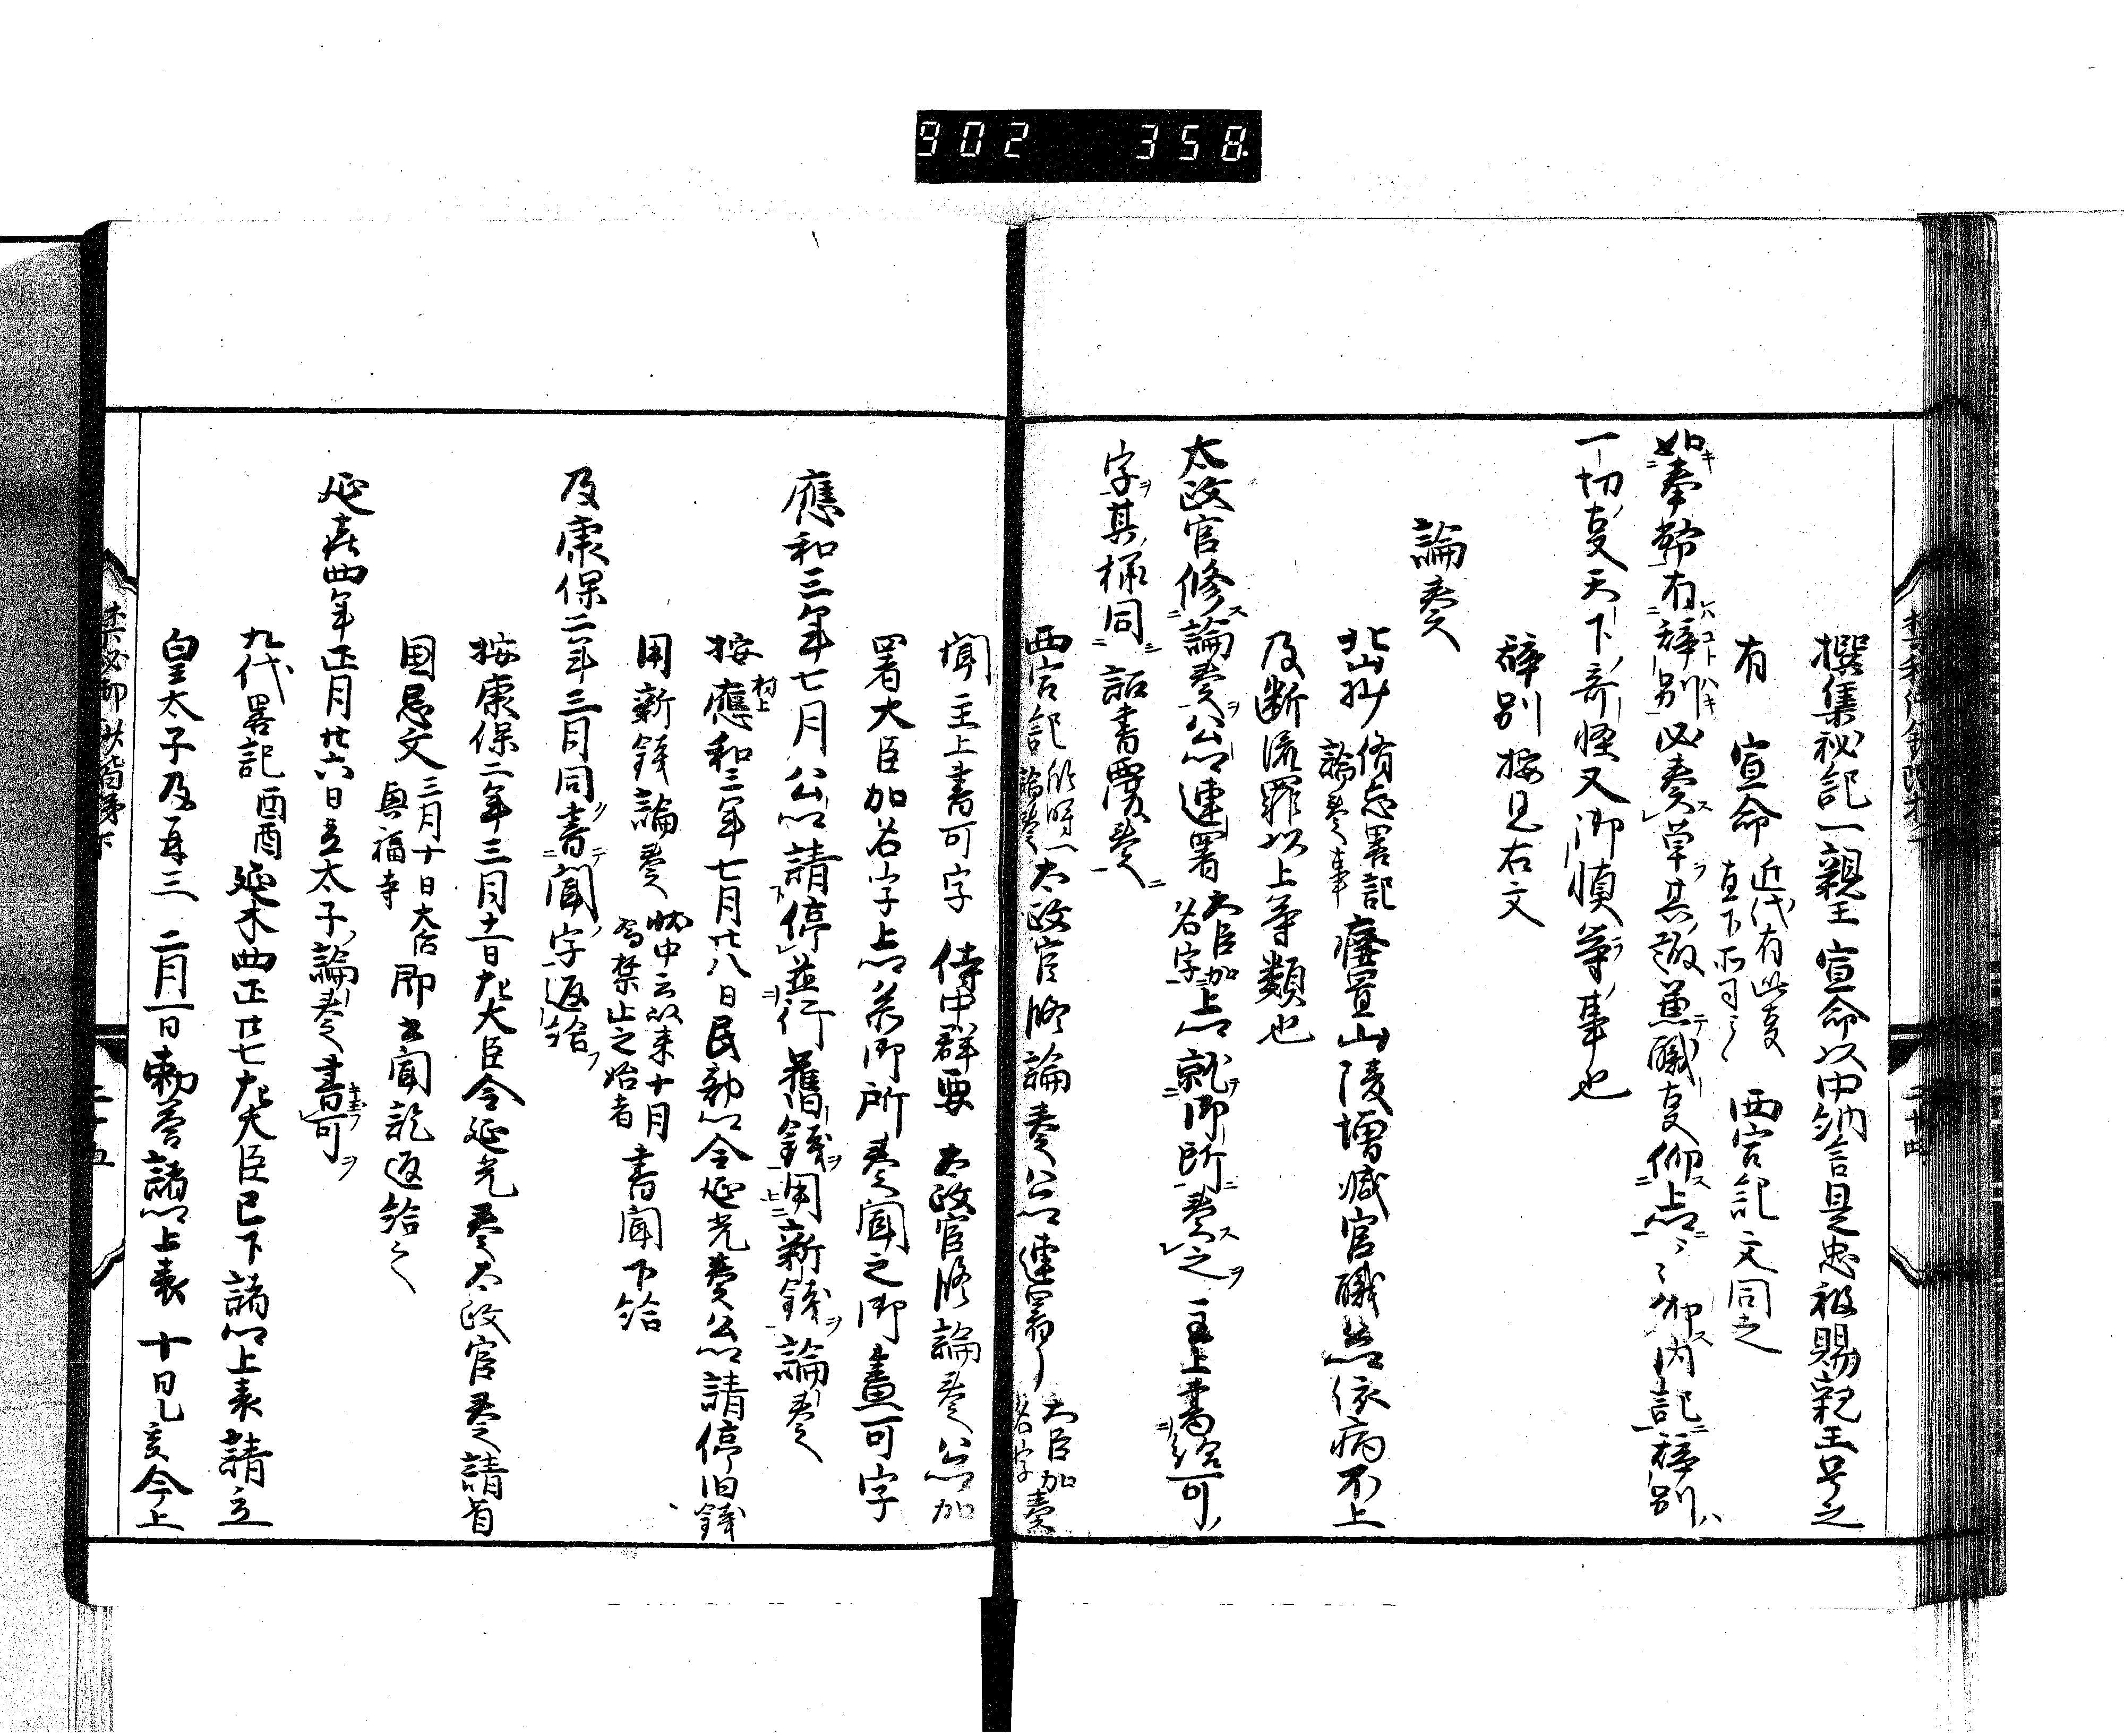 902 358
撰集秘記一親王宣命以中納言是忠被賜親王号之
有 宣命 近代有此㕝 直下所司之 西宮記文同之
如奉幣有辞別必奏草其趣兼職㕝仰上卿上卿仰内記辞別ハ
一切㕝天下奇怪又御慎等事也
辞別按見右文
論奏
北山抄 脩忘畧記 論奏事 廢置山陵増減官職
及断流罪以上等類也
太政官修論奏公卿連署 大臣加名字 上卿就御所奏之 主上書給可
字其極同詔書覆奏
西宮記 論奏 太政官修論奏公卿連署 大臣加名字 奏
聞主上書可字 侍中群要 太政官修論奏公卿加
署大臣加名字上卿参御所奏聞之御畫可字
應和三年七月公卿請停並行舊錢用新錢論奏
按應和三年七月廿八日民部卿令延光奏公卿請停旧錢 村上
用新錢論奏 状中云以来十月為禁止之始者 書聞下給
及康保二年三月同書聞字返給
按康保二年三月十一日左大臣令延光奏太政官奏請省
国忌文 三月十日大后 興福寺 即書聞訖返給之
延㐂四年正月廿六日立太子論奏書可
九代畧記 酉酉 延木四正廿七左大臣已下諸卿上表請立
皇太子及再三 二月一日勅答諸卿上表 十日乙亥今上
禁秘御抄階梯下
二十四
二十五